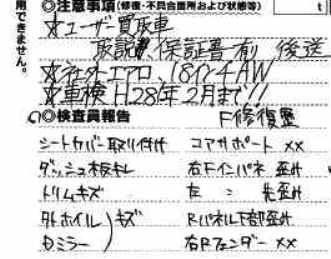 ◎注意事項(修復・不具合箇所および状態等)
用できません。
☆ユーザー買取車
取説、保証書有 後送
☆社外エアロ、18インチAW
☆車検 H28年2月まで!!
◎検査員報告 F修復歴
シートカバー取り付け コアサポート ××
ダッシュ板キレ 右Fインパネ 歪み
ドリムキズ 左 〃 先歪み
外ホイル)キズ Rパネル下部歪み
Dミラー 右Rフェンダー ××